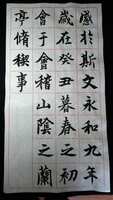 感於斯文永和九年
歲在癸丑暮春之初
會于會稽山陰之蘭
亭脩稧事